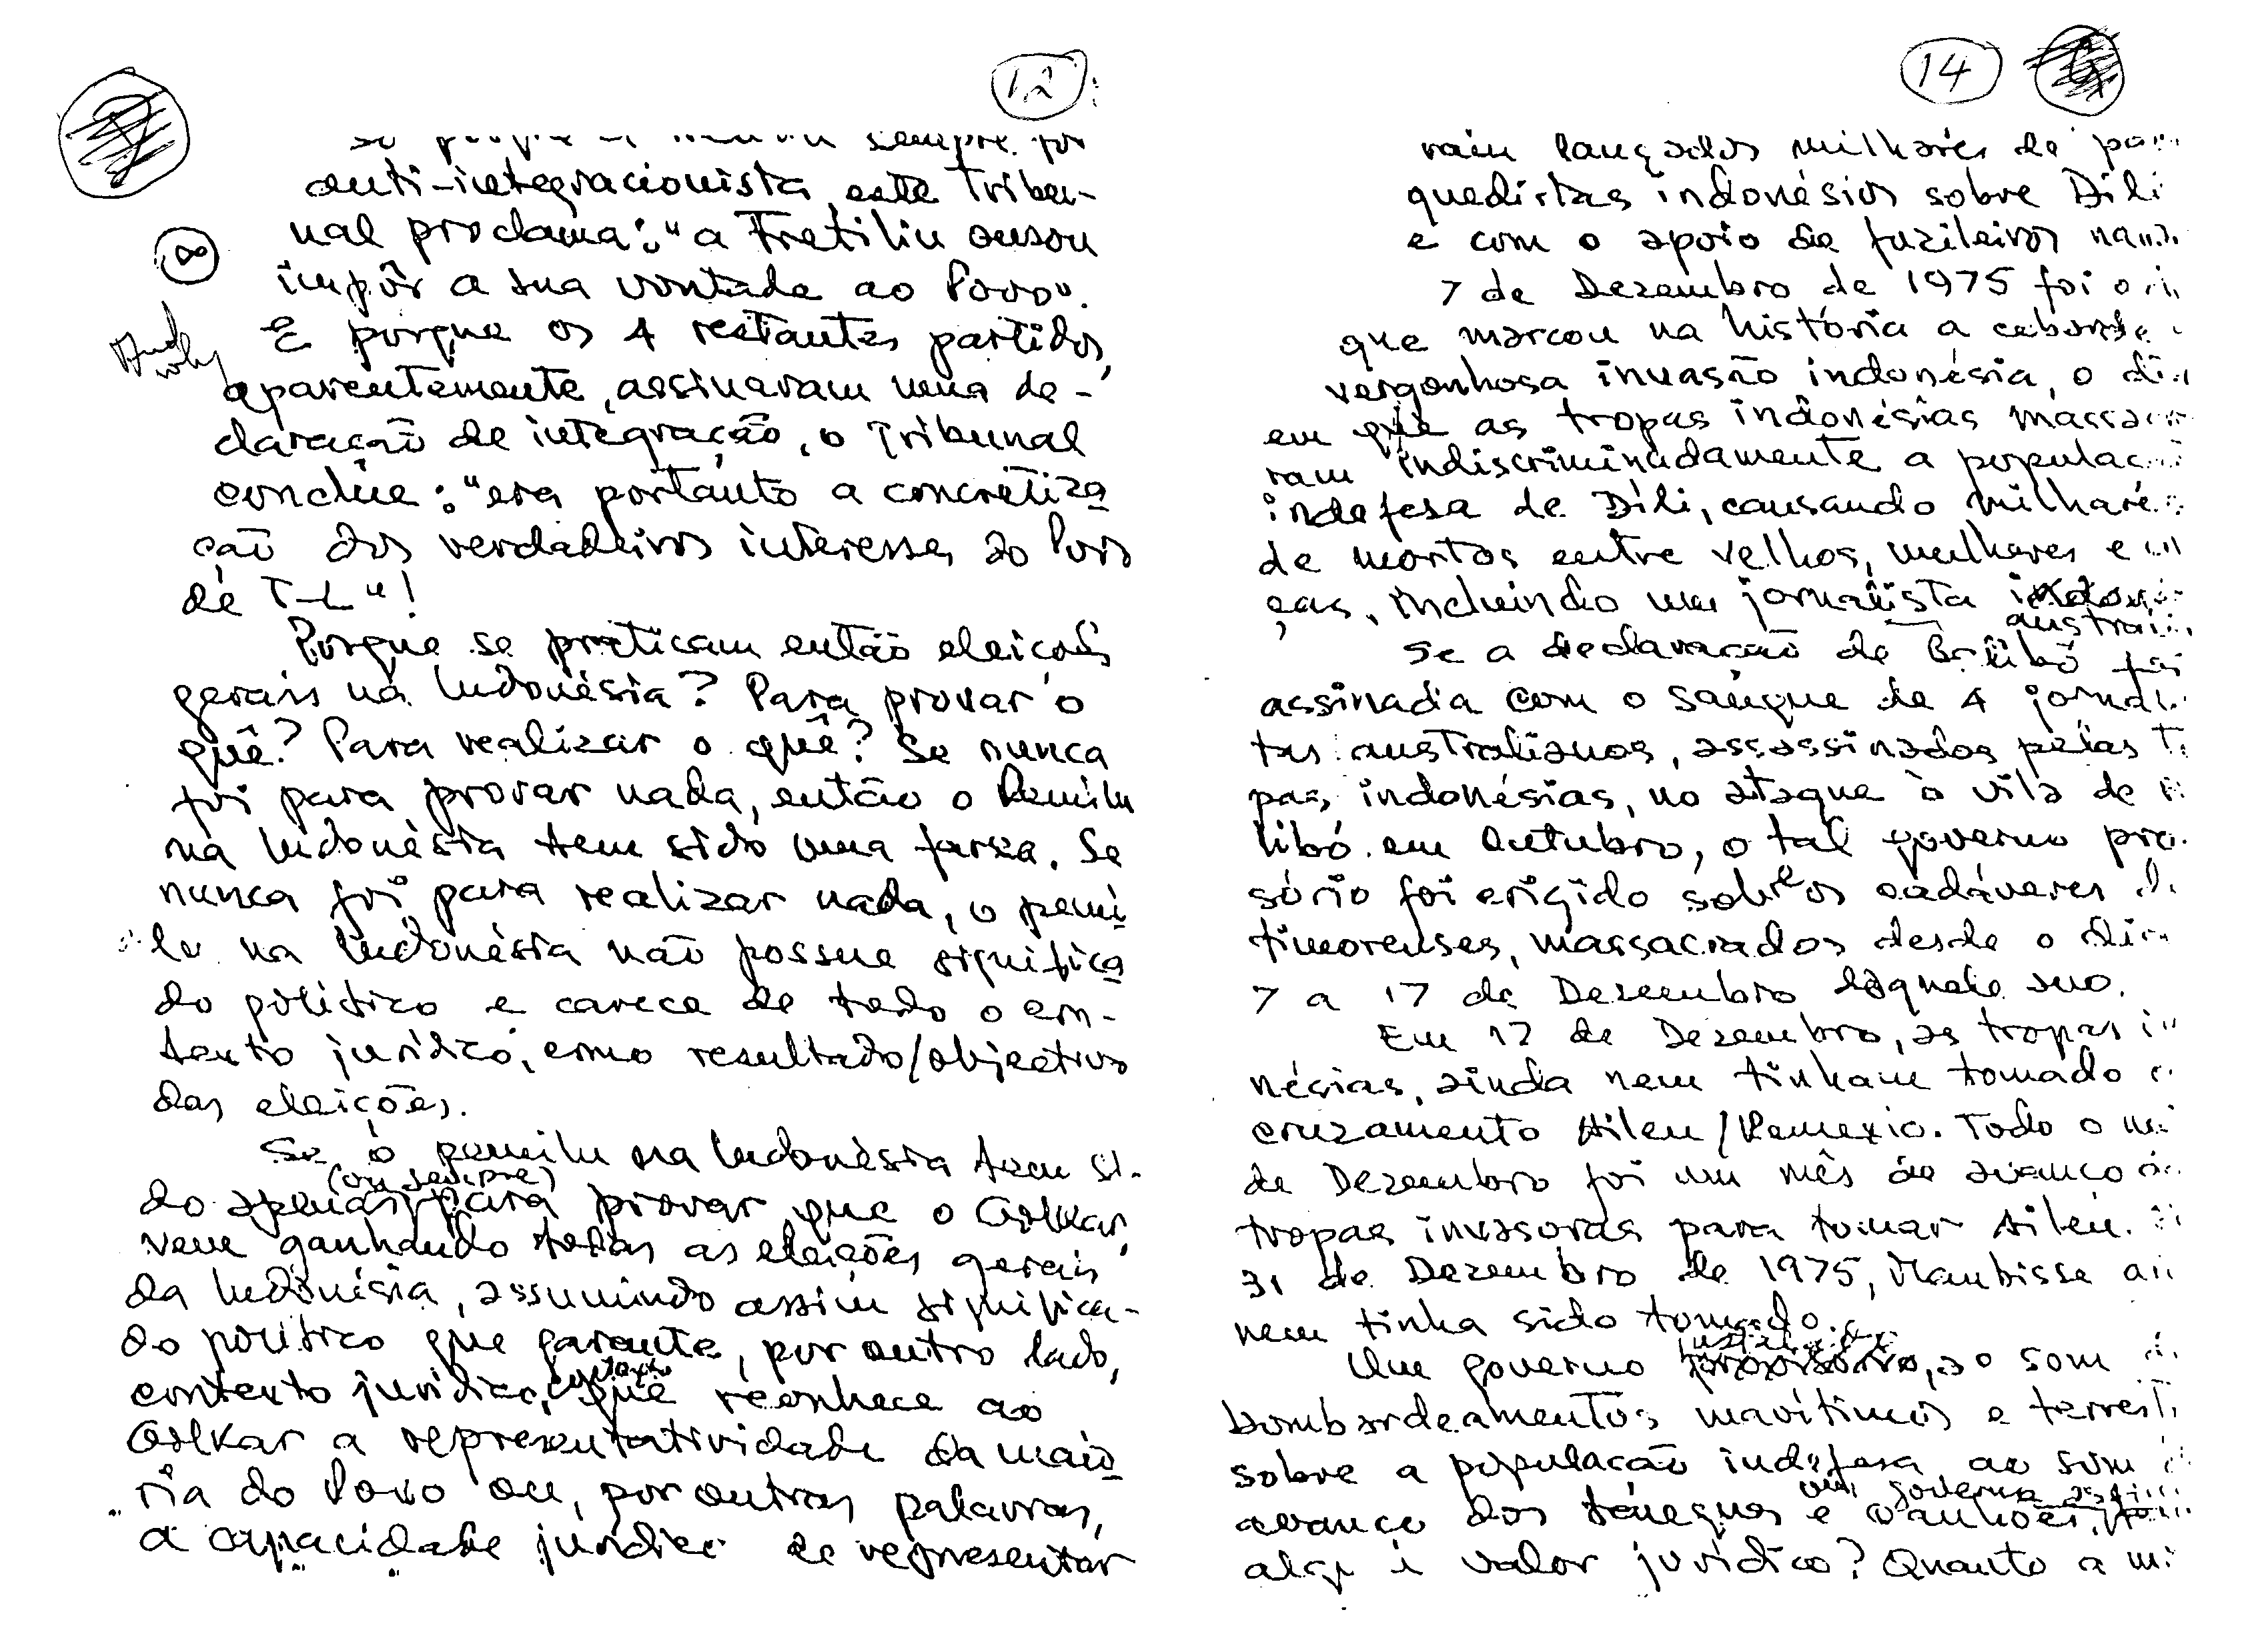 12
sempre foi
anti-integracionista este Tribu-
nal proclama: "a Fretilin ousou
impôr a sua vontade ao Povo".
E porque os 4 restantes partidos,
aparentemente, assinaram uma de-
claração de integração, o Tribunal
conclúe: "era portanto a concretiza
ção dos verdadeiros interesses do Povo
de T-L"!
Porque se praticam então eleições
gerais na Indonésia? Para provar o
quê? Para realizar o quê? Se nunca
foi para provar nada, então o Pemilu
na Indonésia tem sido uma farsa. Se
nunca foi para realizar nada, o pemi
lu na Indonésia não possue significa
do político e carece de todo o con-
texto jurídico, como resultado/objectivo
das eleições.
Se o pemilu na Indonésia tem si-
(ou sempre)
do apenas para provar que o Golkar
vem ganhando todas as eleições gerais
da Indonésia, assumindo assim significa-
do político que garante, por outro lado,
contexto jurídico, contexto que reconhece ao
Golkar a representatividade da maio
ria do Povo ou, por outras palavras,
a capacidade jurídica de representar
14
ram lançados milhares de pa
quedistas indonésios sobre Dili
e com o apoio de fuzileiros
7 de Dezembro de 1975 foi o
que marcou na história a cobarde
vergonhosa invasão indonésia, o
em que as tropas indonésias massac
ram indiscriminadamente a populaç
indefesa de Díli, causando milhare
de mortos entre velhos, mulheres e
ças, incluindo um jornalista
austral
Se a declaração de Balibó foi
assinada com o sangue de 4 jornal
tas australianos, assassinados pelas t
pas indonésias, no ataque à vila de
libó em Outubro, o tal governo pro
sório foi erigido sobre os cadáveres d
timorenses, massacrados desde o dia
7 a 17 de Dezembro daquele ano.
Em 17 de Dezembro, as tropas in
nésias, ainda nem tinham tomado o
cruzamento Aileu/Remexio. Todo o m
de Dezembro foi um mês de avanço d
tropas invasoras para tomar Aileu.
31 de Dezembro de 1975, Maubisse ai
nem tinha sido tomado.
Um governo provisório, ao som d
bombardeamentos marítimos e terrest
sobre a população indefesa ao som
um governo
avanço dos tanques e canhões,
valor jurídico? Quanto a mi